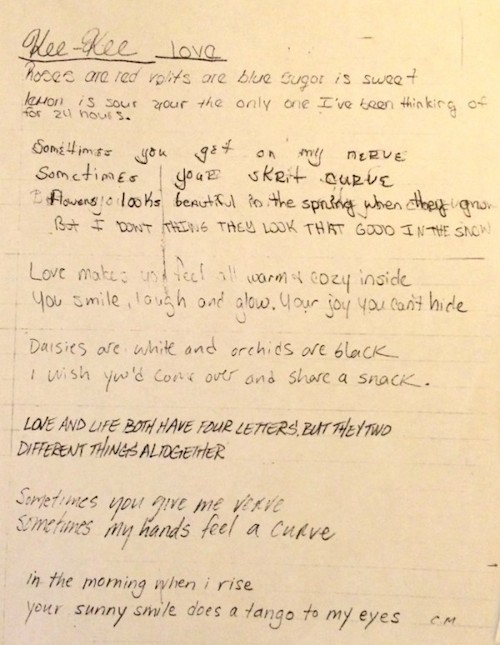 Kee-Kee love
Roses are red volits are blue sugar is sweet
lemon is sour your the only one I've been thinking of
for 24 hours.
Sometimes you get on my nerve
Sometimes your skrit curve
Flowers looks beautiful in the spring when they grow
But I DONT THING THEY LOOK THAT GOOD IN THE SNOW
Love makes you feel all warm & cozy inside
You smile, laugh and glow. Your joy you can't hide
Daisies are white and orchids are black
I wish you'd come over and share a snack.
LOVE AND LIFE BOTH HAVE FOUR LETTERS, BUT THEY TWO
DIFFERENT THINGS ALTOGETHER
Sometimes you give me verve
Sometimes my hands feel a curve
in the morning when i rise
your sunny smile does a tango to my eyes CM